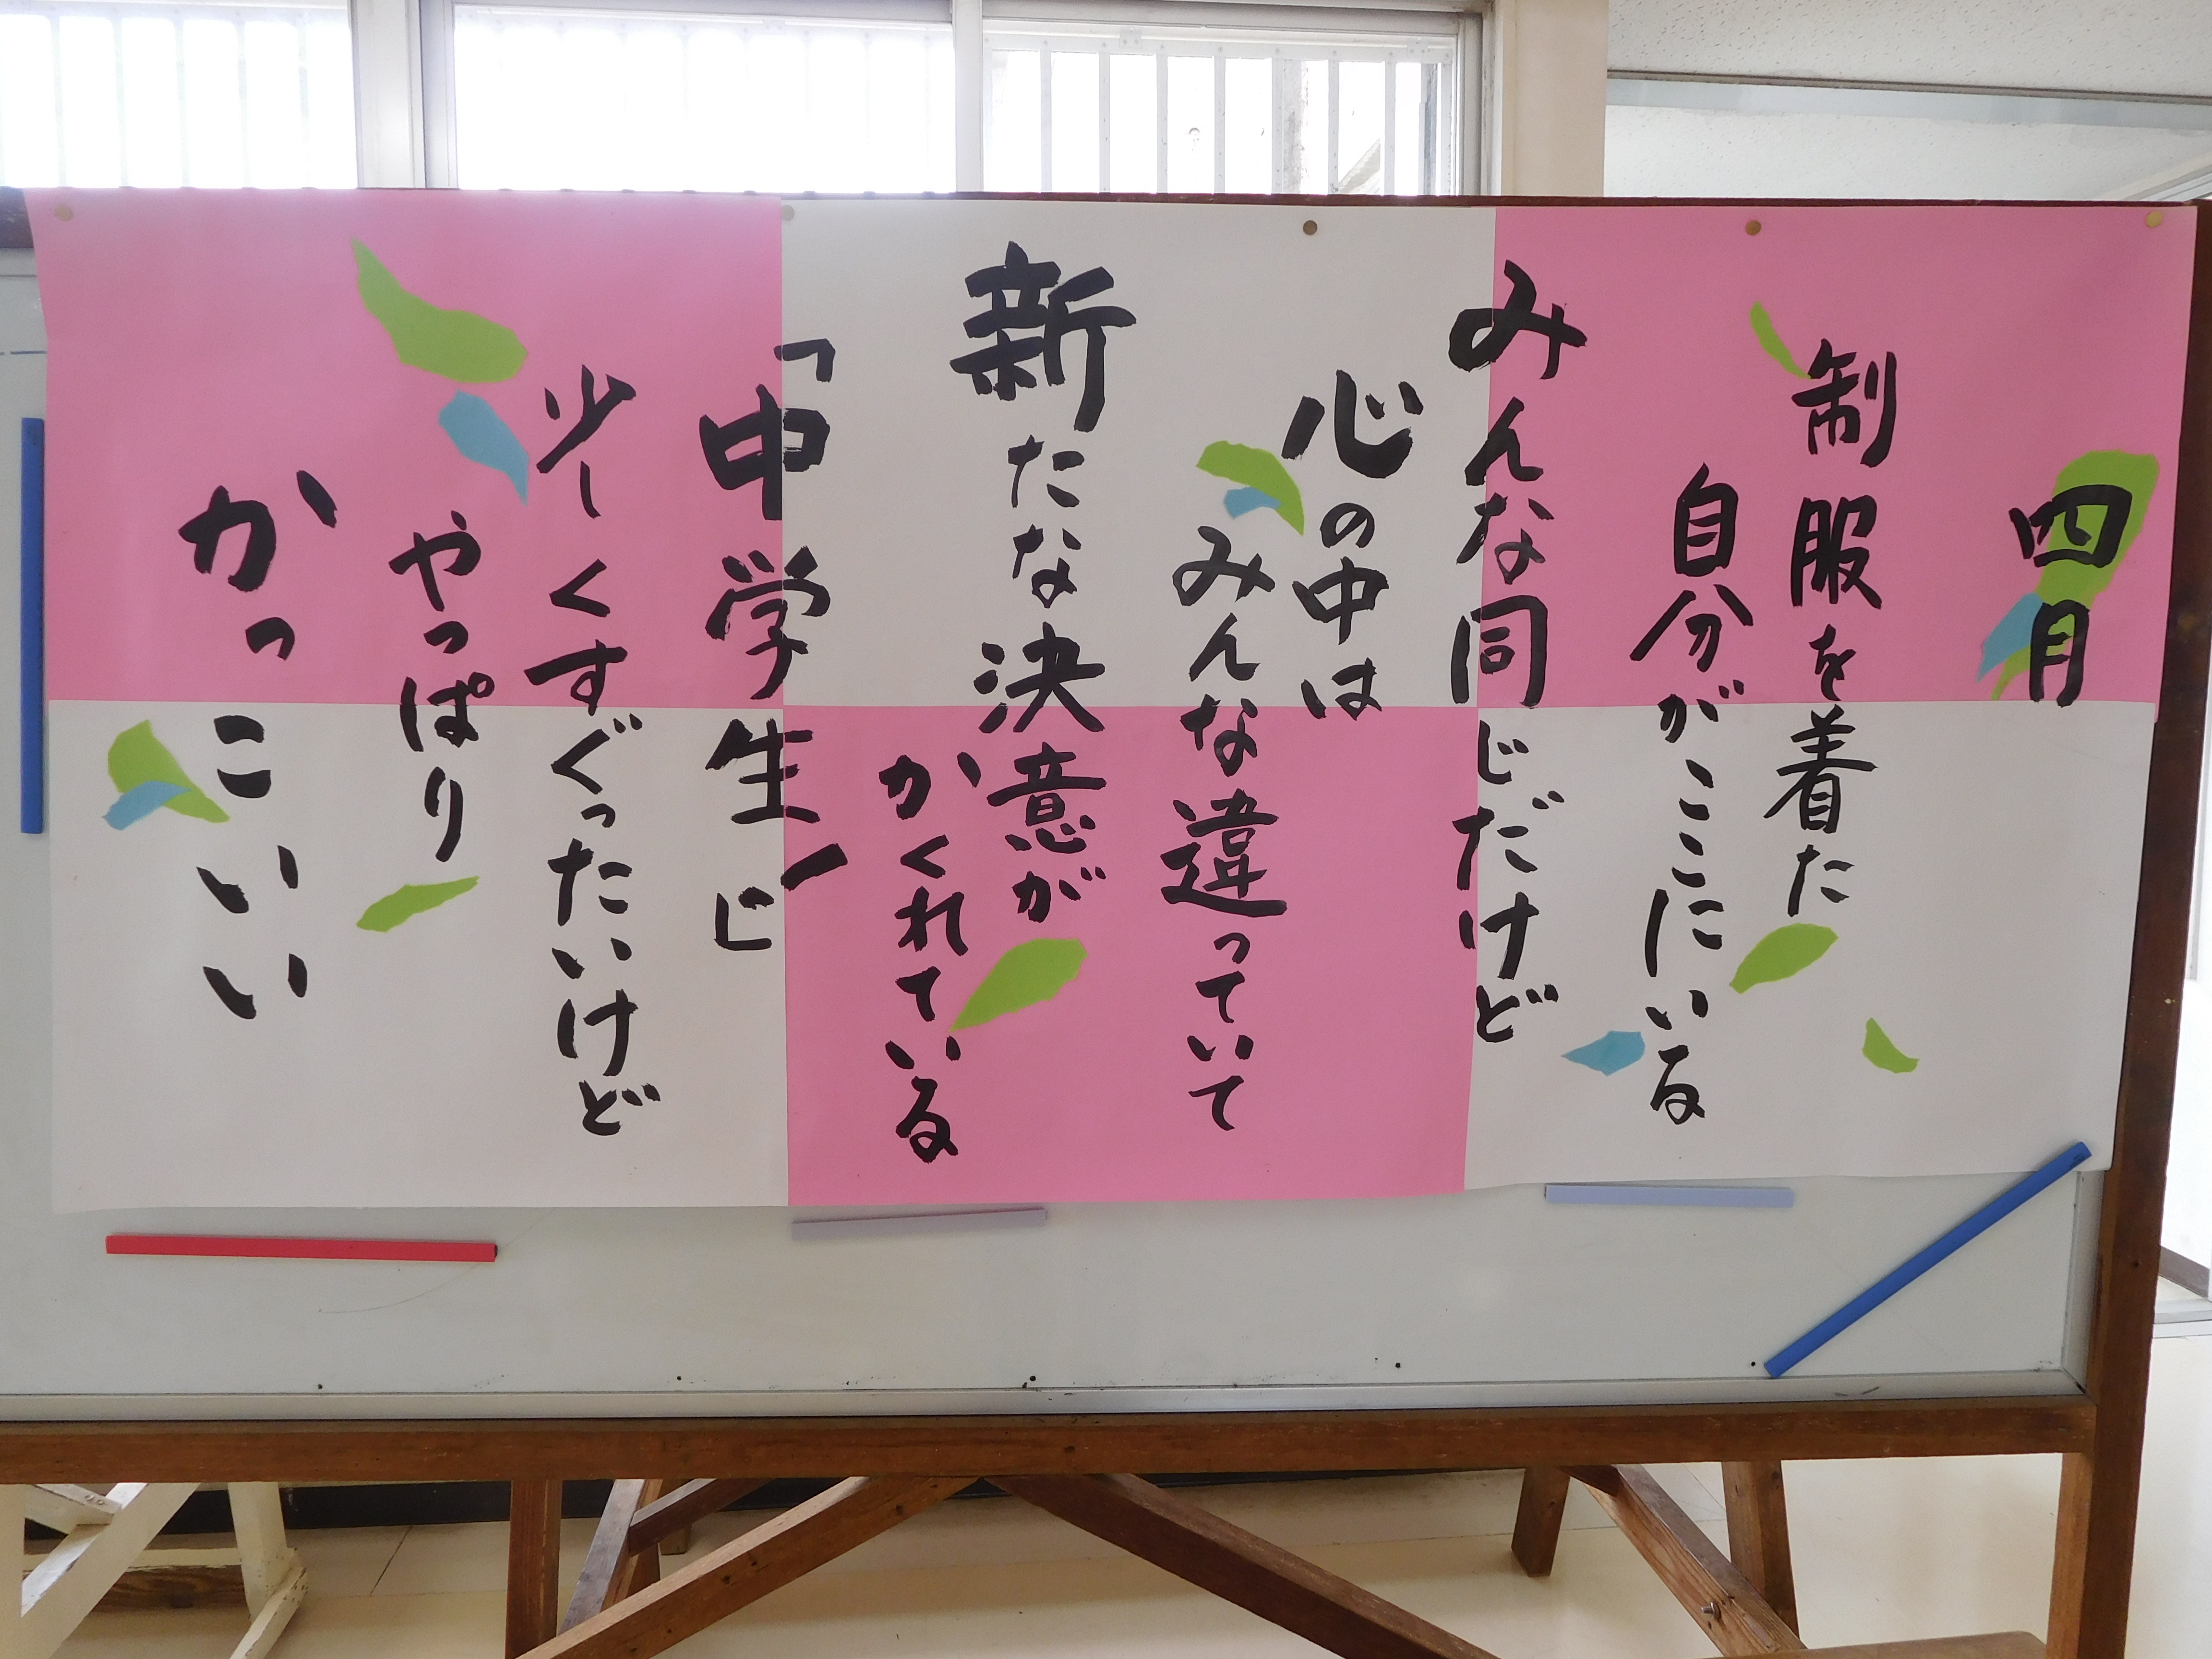 四月
制服を着た
自分がここにいる
みんな同じだけど
心の中は
みんな違っていて
新たな決意が
かくれている
「中学生」
少しくすぐったいけど
やっぱり
かっこいい